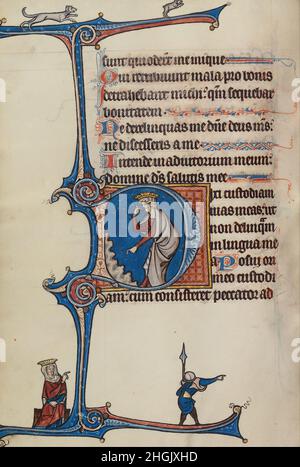 sunt qui oderũt me inique
Qui retribuunt mala pro bonis
detrahebant michi: qm̃ sequebar
bonitatem
Ne derelinquas me dñe deus ms:
ne discesseris a me
Intende in adiutorium meum:
domine dñs salutis mee
Dixi custodiam
uias meas: ut
non delinquã
in lingua me
a Posui ori
meo custodi
am: cum consisteret peccator ad
2HGJXHD